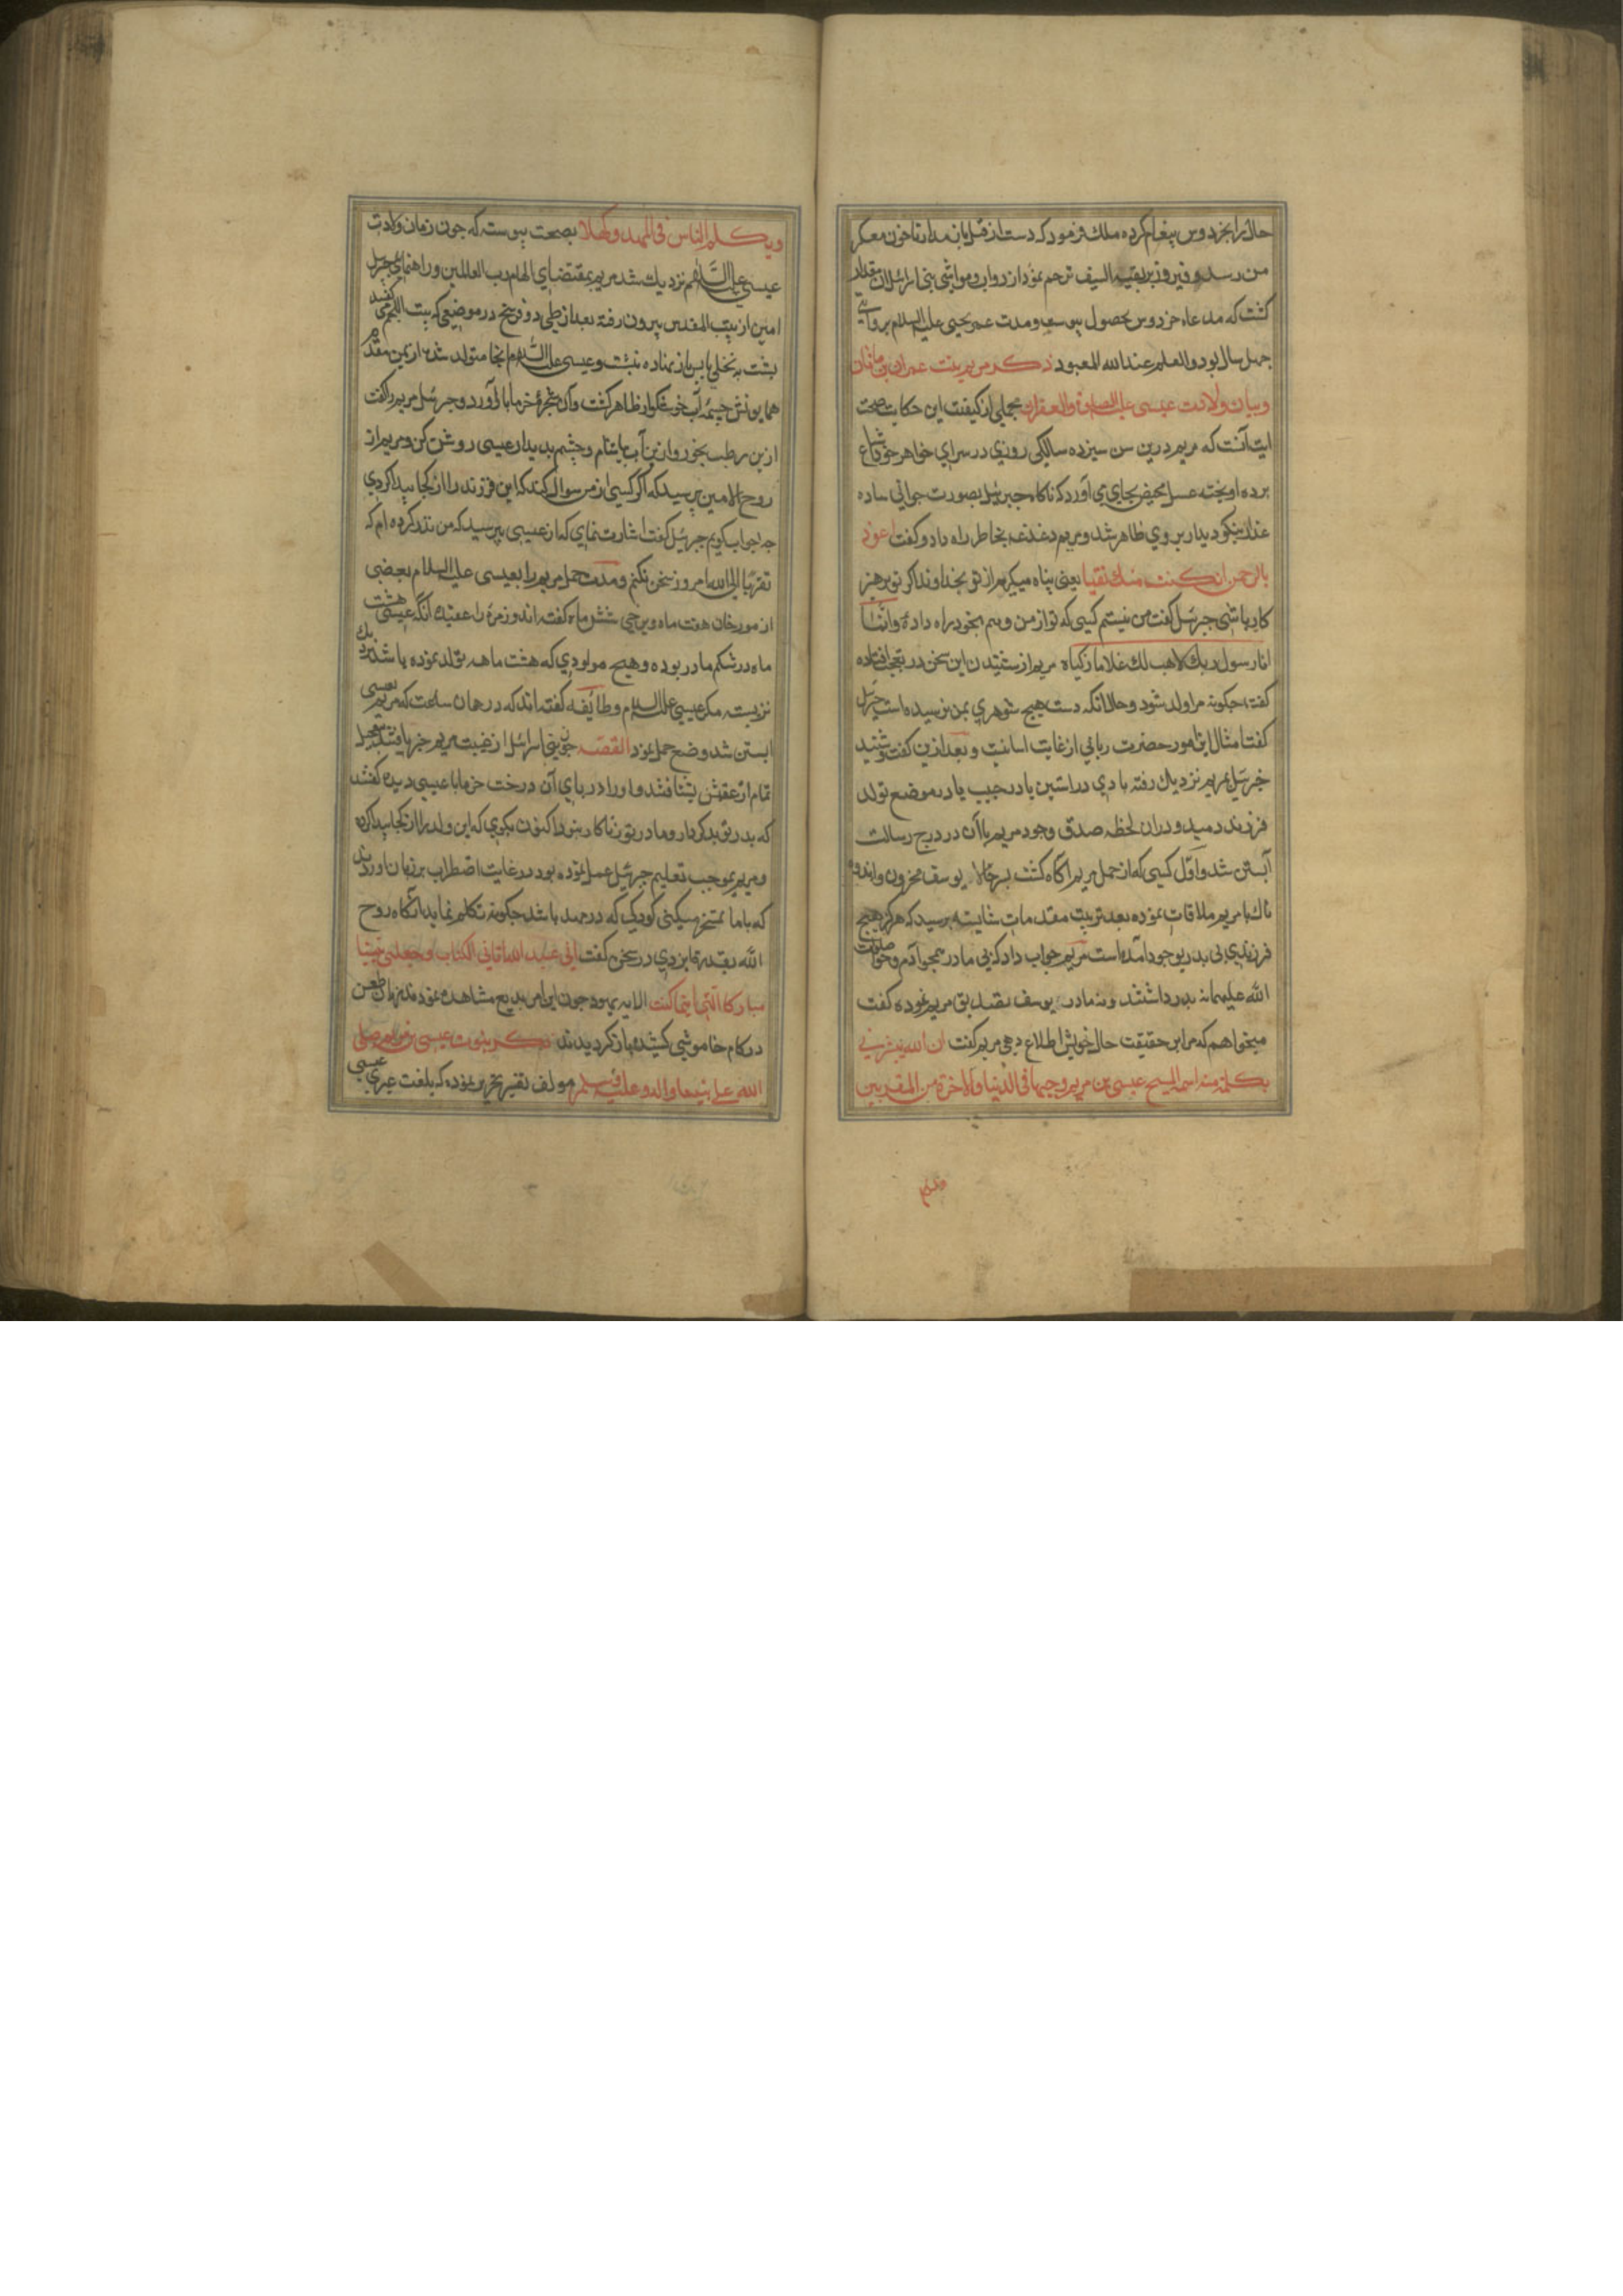 حال را بخردوس پیغام کرده ملک فرمود که دست از قتل باز مدار تا خون بمعسکر
من رسد و فیروز بر بقیه السیف ترحم نمود از دواب و مواشی بنی اسرائیل آن مقدار
کشت که مدعاء خردوس بحصول پیوست و مدت عمر یحیی علیه السلام بروایتی
چهل سال بود والعلم عند الله المعبود ذکر مریم بنت عمران بن ماثان
وبیان ولادت عیسی علیه الصلوة والغفران مجملی از کیفیت این حکایت صحت
ایت آنست که مریم در سن سیزده سالگی روزی در سرای خواهر خود
پرده اویخته غسل محیض بجای می آورد که ناگاه جبرئیل بصورت جوانی ساده
عذار نیکو دیدار بر وی ظاهر شد و مریم دغدغه بخاطر راه داد و گفت اعوذ
بالرحمن ان کنت منک تقیا یعنی پناه میگیرم از تو بخداوند اگر تو پرهیز
کار باشی جبرئیل گفت من نیستم کسی که تو از من وهم بخود راه دادۀ وانما
انا رسول ربک لاهب لک غلاما زکیا مریم از شنیدن این سخن در تعجب افتاده
گفت چگونه مرا ولد شود و حال آنکه دست هیچ شوهری بمن نرسیده است جبرئیل
گفت امثال این امور حضرت ربانی از غایت اسانیست و بعد ازین گفت و شنید
جبرئیل بمریم نزدیک رفته بادی در استین یا در جیب یا در موضع تولد
فرزند دمید و در ان لحظه صدف وجود مریم باآن در درج رسالت
آبستن شد و اول کسی که از حمل مریم اگاه گشت پسر خال او یوسف محزون و اندوه
ناک با مریم ملاقات نموده بعد ترتیب مقدمات شایسته پرسید که هرگز هیچ
فرزندی بی پدر بوجود امده است مریم جواب داد که بی مادر همچو آدم و حوا صلوات
الله علیهما نه پدر داشتند و نه مادر یوسف تصدیق مریم نموده گفت
میخواهم که مرا بر حقیقت حال خویش اطلاع دهی مریم گفت ان الله یبشرنی
بکلمة منه اسمه المسیح عیسی بن مریم وجیها فی الدنیا والاخرة من المقربین
ویکلم الناس فی المهد وکهلا بصحت پیوسته که چون زمان ولادت
عیسی علیه السلام نزدیک شد مریم بمقتضای الهام رب العالمین و راهنمای جبرئیل
امین از بیت المقدس بیرون رفته بعد از طی دو فرسخ در موضعی که بیت اللحم می گفتند
پشت به نخلی یابس باز نهاده بنشست و عیسی علیه السلام انجا متولد شد از یمن مقدم
همایونش چشمه آب خوشگوار ظاهر گشت وآن شجره خرما بار آورد و جبرئیل مریم را گفت
ازین رطب بخور و ازین آب بیاشام و چشم بدیدار عیسی روشن کن و مریم از
روح الامین پرسید که اگر کسی از من سوال کند که این فرزند را از کجا پیدا کردی
چه جواب گویم جبرئیل گفت اشارت نمای که از عیسی بپرسید که من نذر کرده ام که
تقربا الی الله امروز سخن نکنم و مدت حمل مریم را بعیسی علیه السلام بعضی
از مورخان هفت ماه و برخی شش ماه گفته اند و زمرۀ را عقیده انکه عیسی هشت
ماه در شکم مادر بوده و هیچ مولودی که هشت ماهه تولد نموده باشد
نزیسته مگر عیسی علیه السلام و طایفه گفته اند که در همان ساعت که مریم بعیسی
ابستن شد وضع حمل نمود القصه چون بنی اسرائیل از غیبت مریم خبر یافتند
تمام از عقبش بشتافتند و او را در پای آن درخت خرما با عیسی دیده گفتند
که پدر تو بدکردار و مادر تو زناکار نبود اکنون بگوی که این ولد را از کجا پیدا کرده
ومریم بموجب تعلیم جبرئیل عمل نموده یهود در غایت اضطراب بر زبان آوردند
که با ما تمسخر میکنی کودکی که در مهد باشد چگونه تکلم نماید انگاه روح
الله بقدرة ایزدی در سخن گفت انی عبد الله اتانی الکتاب وجعلنی نبیا
مبارکا اینما کنت الایه یهود چون این امر بدیع مشاهده نمودند زبان طعن
در کام خاموشی کشیده بازگردیدند ذکر نبوت عیسی بن مریم صلی
الله علی نبینا واله و علیه وسلم مولف فقیر تحریر نموده که بلغت عبری عیسی